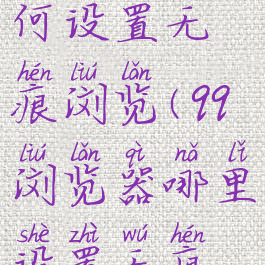 何设置无
hén liú lǎn
痕浏览(99
liú lǎn qì nǎ lǐ
浏览器哪里
shè zhì wú hén
设置无痕